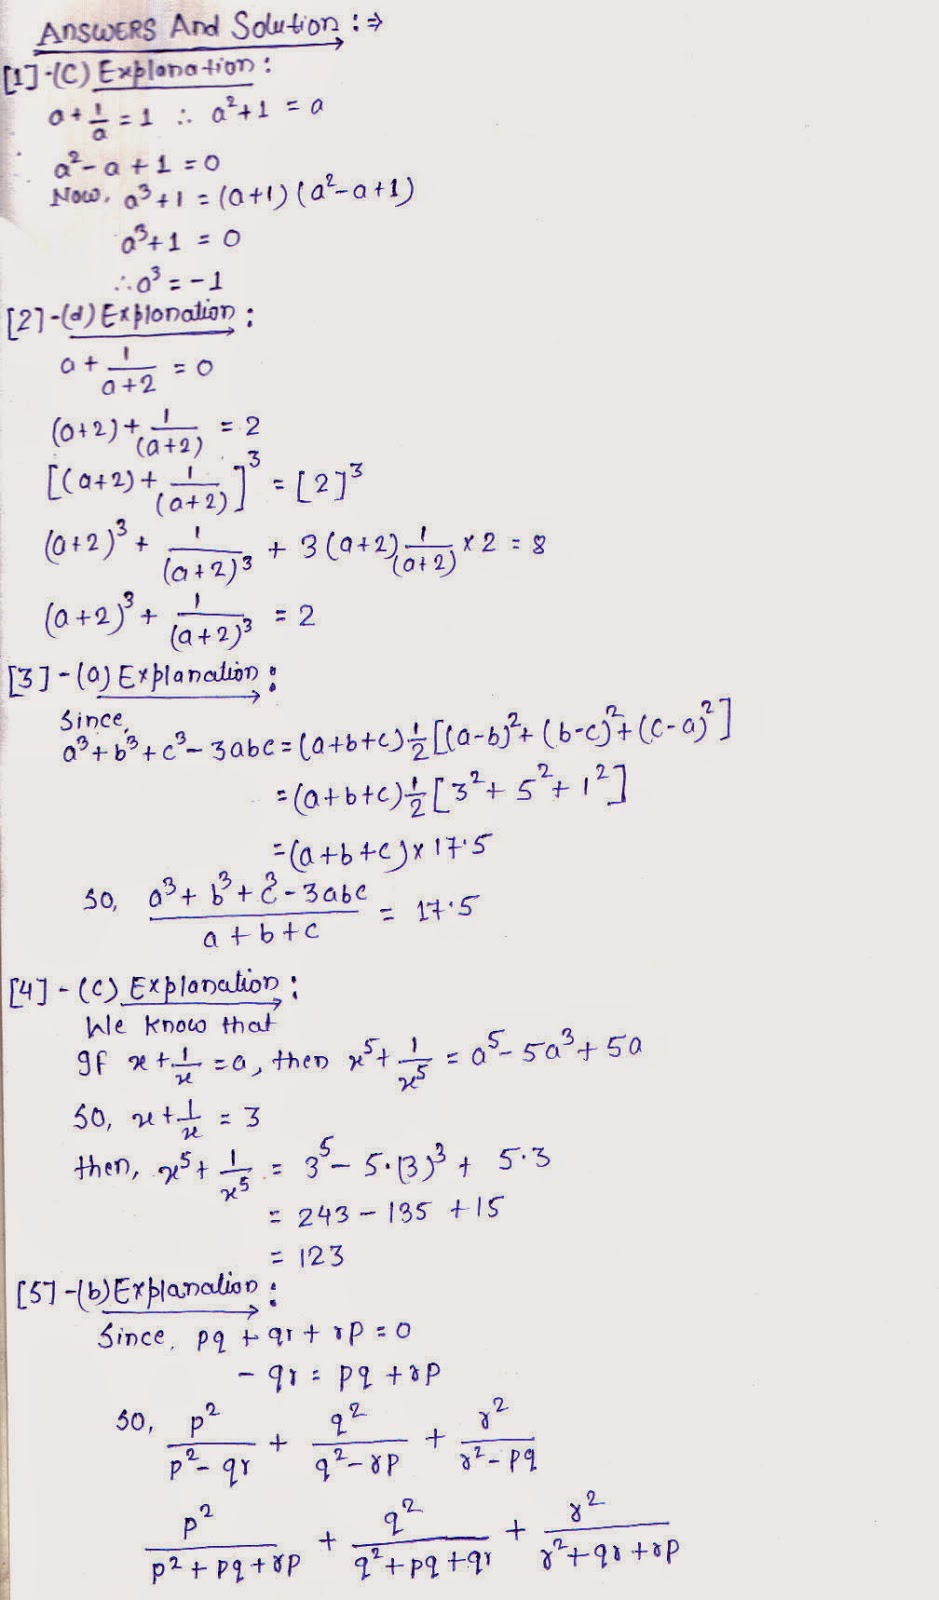 ANSWERS And Solution :⇒
[1]-(C) Explanation :
a + 1/a = 1 ∴ a² + 1 = a
a² - a + 1 = 0
Now, a³ + 1 = (a+1)(a² - a + 1)
a³ + 1 = 0
∴ a³ = -1
[2]-(d) Explanation :
a + 1/(a+2) = 0
(a+2) + 1/(a+2) = 2
[(a+2) + 1/(a+2)]³ = [2]³
(a+2)³ + 1/(a+2)³ + 3(a+2) 1/(a+2) × 2 = 8
(a+2)³ + 1/(a+2)³ = 2
[3]-(a) Explanation :
Since,
a³ + b³ + c³ - 3abc = (a+b+c) 1/2 [(a-b)² + (b-c)² + (c-a)²]
= (a+b+c) 1/2 [3² + 5² + 1²]
= (a+b+c) × 17.5
So, (a³ + b³ + c³ - 3abc)/(a+b+c) = 17.5
[4]-(C) Explanation :
We know that
If x + 1/x = a, then x⁵ + 1/x⁵ = a⁵ - 5a³ + 5a
So, x + 1/x = 3
then, x⁵ + 1/x⁵ = 3⁵ - 5·(3)³ + 5·3
= 243 - 135 + 15
= 123
[5]-(b) Explanation :
Since, pq + qr + rp = 0
- qr = pq + rp
So, p²/(p² - qr) + q²/(q² - rp) + r²/(r² - pq)
p²/(p² + pq + rp) + q²/(q² + pq + qr) + r²/(r² + qr + rp)